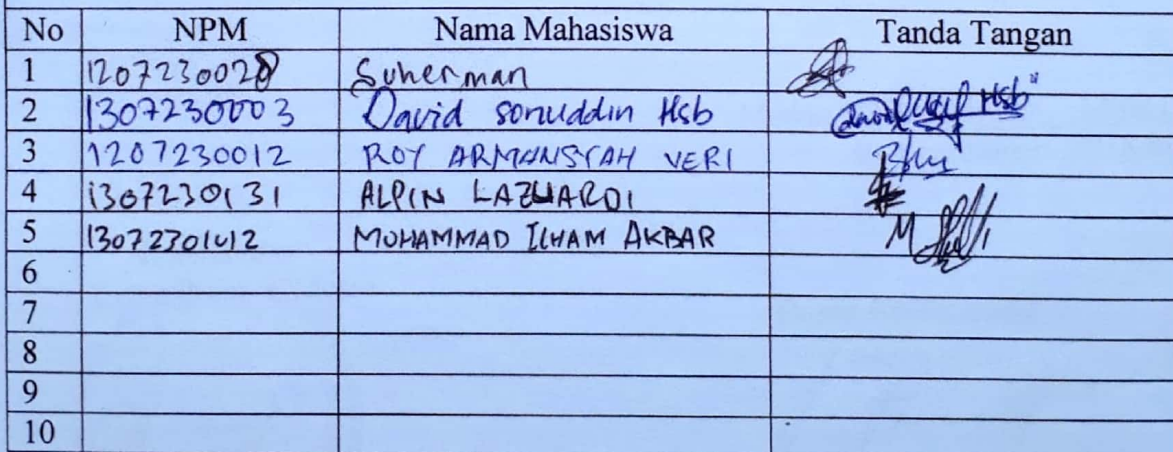 No NPM Nama Mahasiswa Tanda Tangan
1 1207230028 Suherman
2 1307230003 David sonuddin Hsb Hsb
3 1207230012 ROY ARMANSYAH VERI
4 1307230131 ALPIN LAZUARDI
5 MUHAMMAD ILHAM AKBAR M
6
7
8
9
10